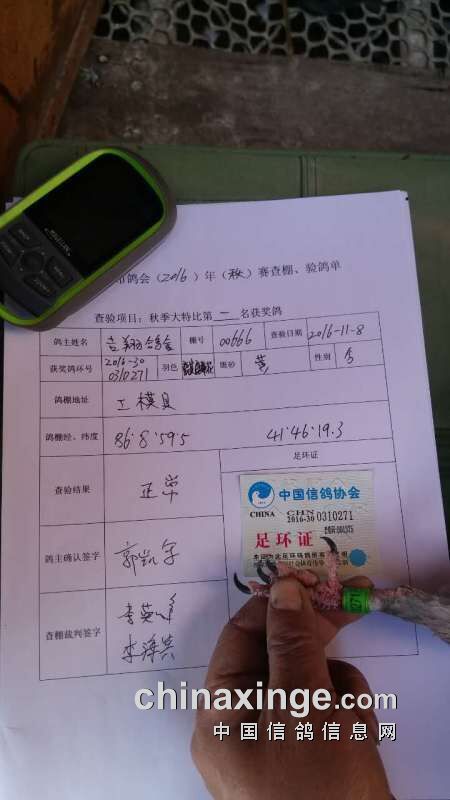 鸽会（2016）年（秋）赛查棚、验鸽单
查验项目：秋季大特比第 二 名获奖鸽
鸽主姓名 吉翔鸽舍 棚号 00666 查验日期 2016-11-8
获奖鸽环号 2016-30 0310271 羽色 眼砂 黄 性别
鸽棚地址 工模具
鸽棚经、纬度 86°8′59.5 41°46′19.3
查验结果 正常
足环证
中国信鸽协会
CHINA CHN
2016-30 0310271
足环证
鸽主确认签字 郭凯宇
查棚裁判签字 李英峰
李海兵
chinaxinge.com
中国信鸽信息网